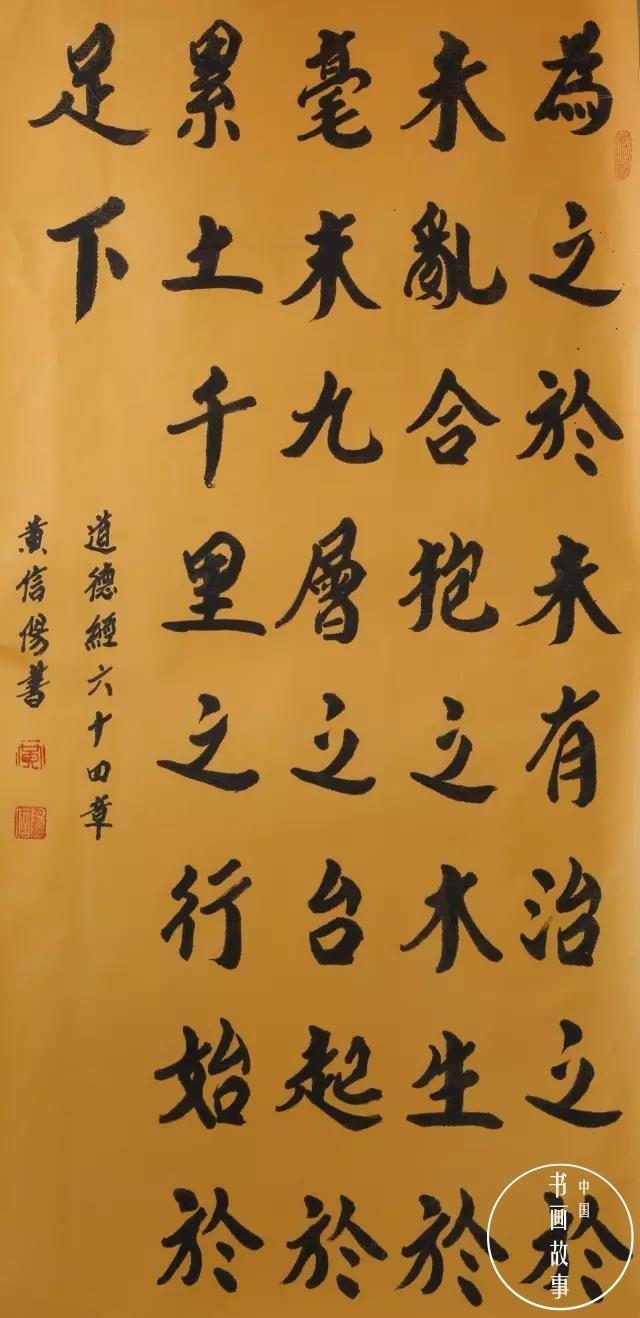 為之於未有治之於
未亂合抱之木生於
毫末九層之台起於
累土千里之行始於
足下
道德經六十四章
黄信陽書
中国
书画故事